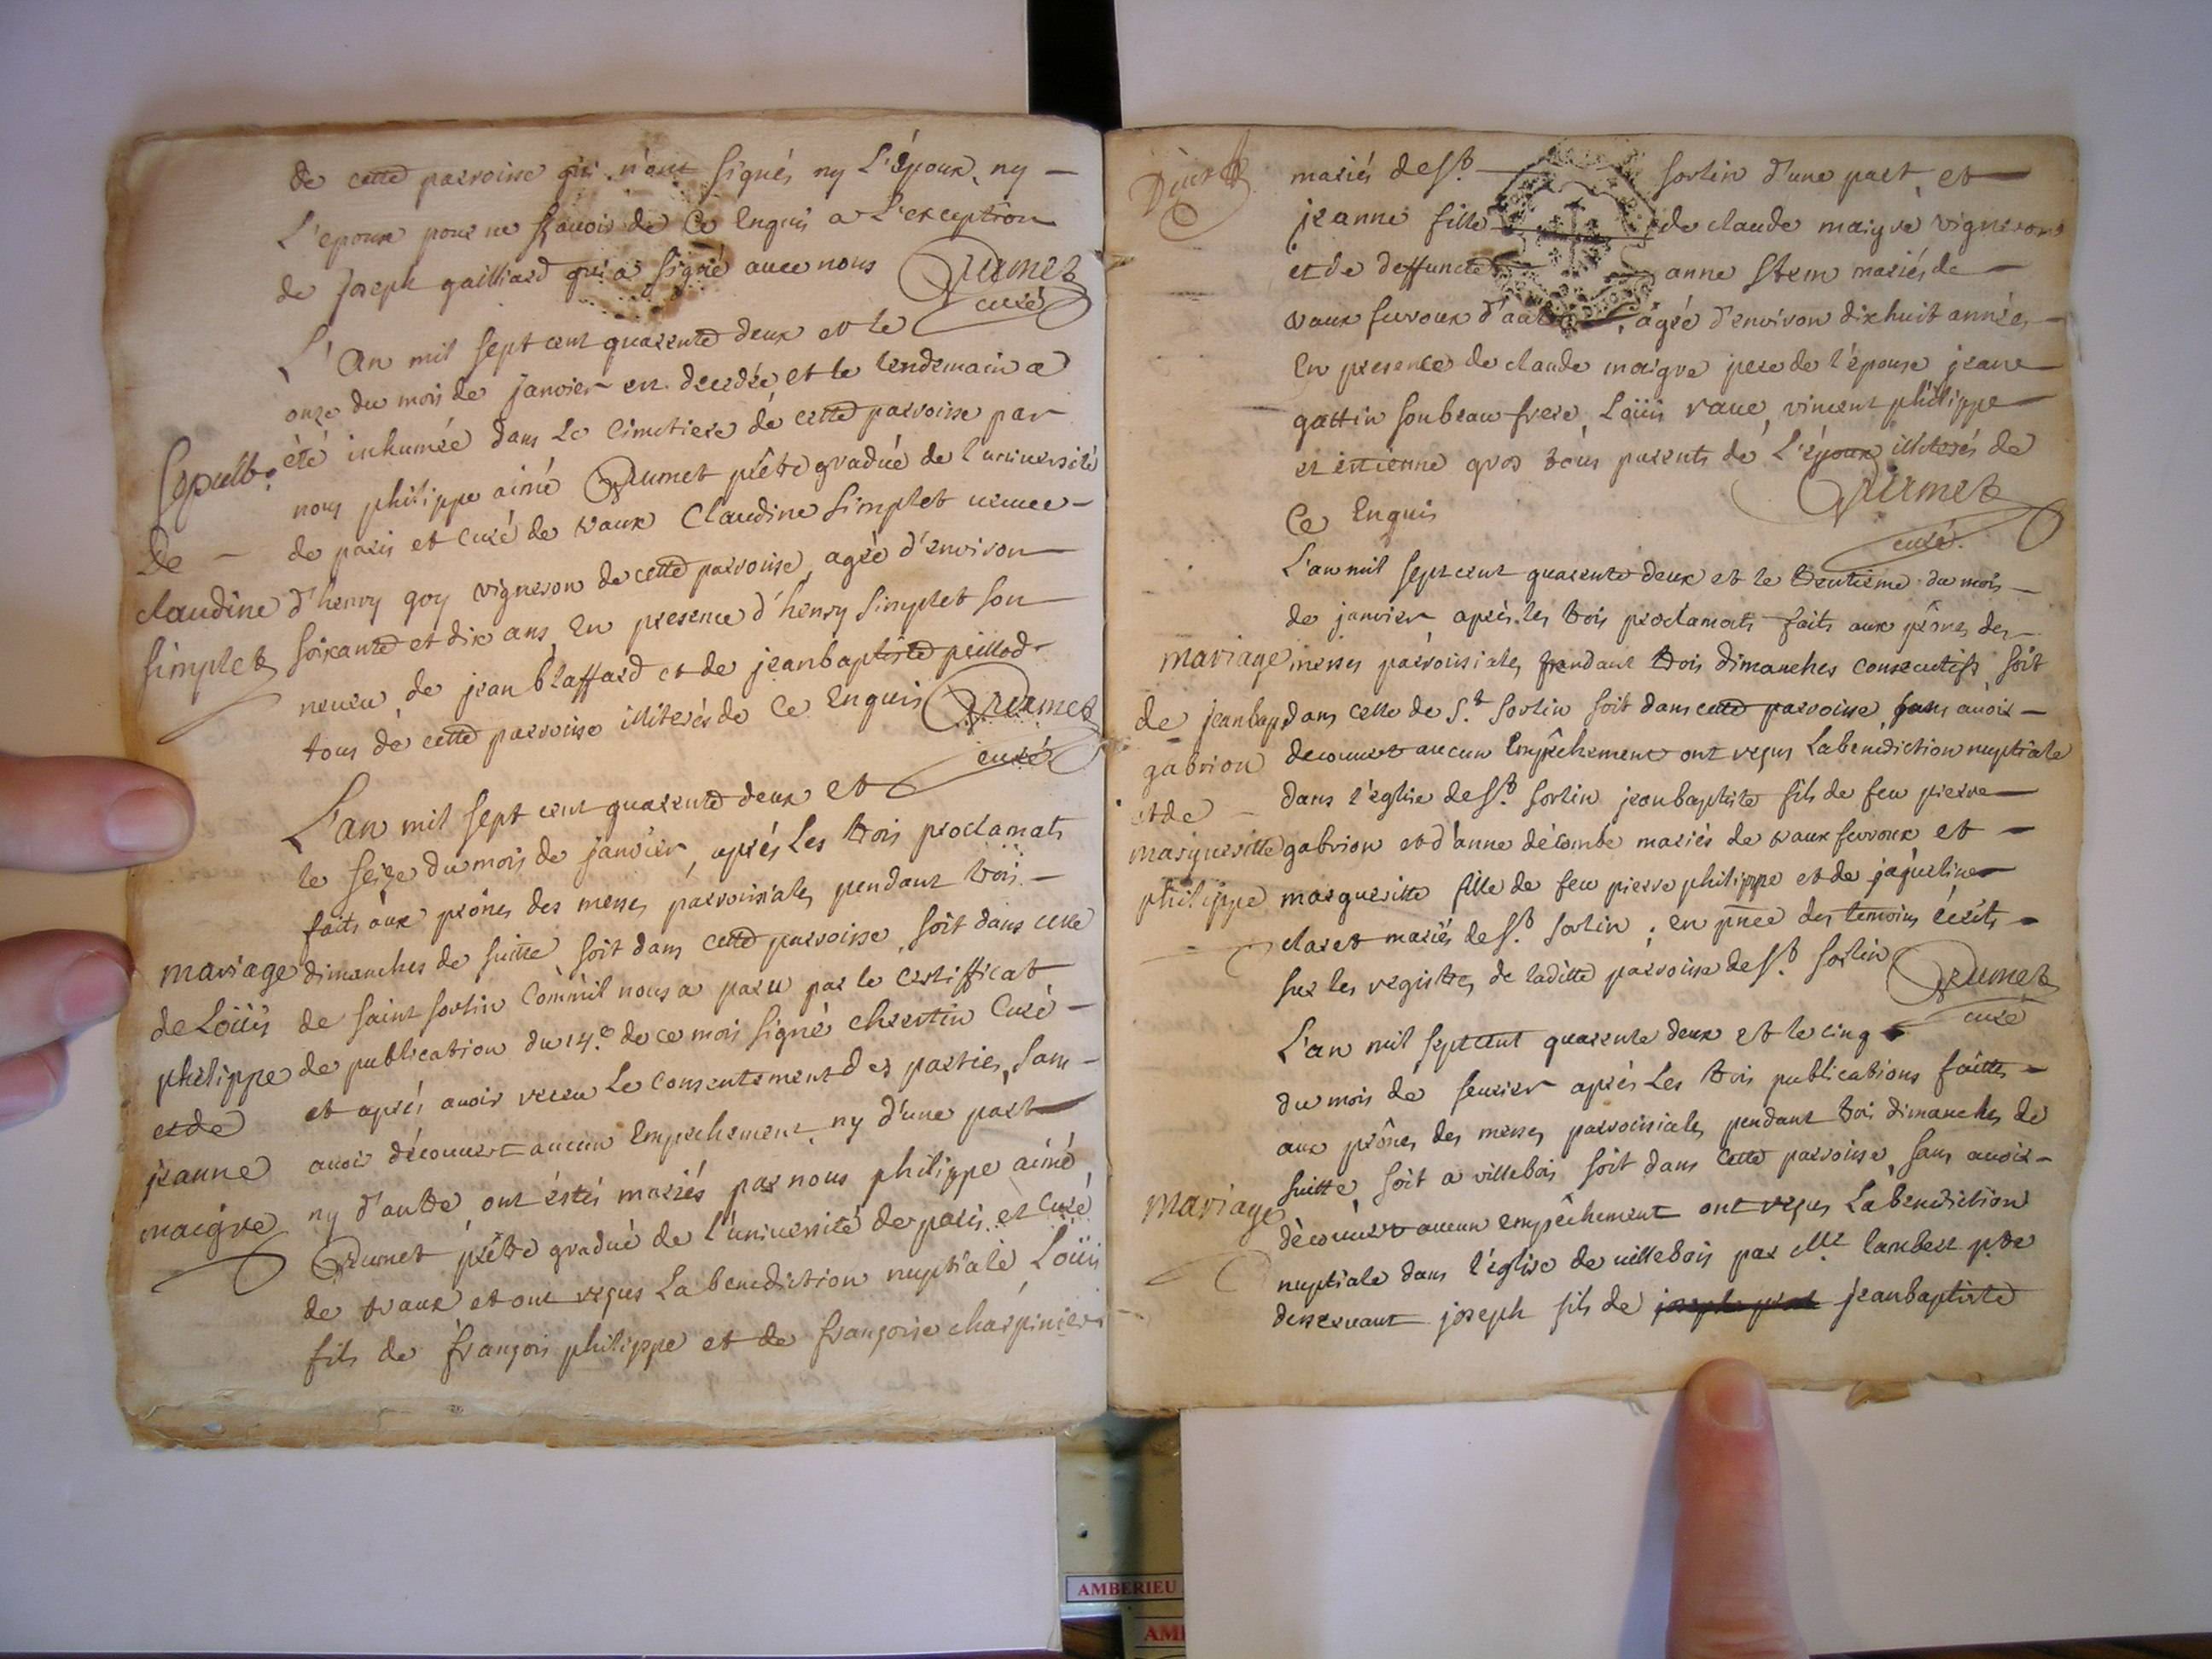 de cette parroisse qui n'ont signés ny L'époux, ny
L'epouse pour ne scavoir de Ce Enquis a L'exception
de Joseph gailliard qui a signé avec nous Brumet
curé
L'An mil sept cent quarente deux et le
onze du mois de janvier est decedée et le lendemain a
été inhumée dans Le Cimetiere de cette parroisse par
nous philippe aimé Brumet prêtre gradué de l'université
de paris et curé de vaux Claudine Simplet veuve
d'henry goy vigneron de cette parroisse, agée d'environ
soixante et dix ans, En presence d'henry Simplet son
neveu, de jean blaffard et de jeanbaptiste peillod
tous de cette parroisse illiterés de Ce Enquis Brumet
curé
Sepult.
De
claudine
simplet
L'an mil sept cent quarente deux et
le seize du mois de janvier, aprés Les trois proclamats
faits aux prônes des messes parroissiales pendant trois
dimanches de suitte soit dans cette parroisse, soit dans celle
de saint sorlin Comm'il nous a paru par le Certifficat
de publication du 14.e de ce mois signé chrertin Curé
et aprés avoir receu Le Consentement des parties, sans
avoir découvert aucun Empechement, ny d'une part
ny d'autre, ont éstés mariés par nous philippe aimé
Brumet prêtre gradué de l'université de paris et Curé
de vaux et ont reçus La benediction nuptiale Loüis
fils de françois philippe et de françoise charpinier
mariage
de Loüis
philippe
et de
jeanne
maigre
mariés de St. sorlin d'une part, et
jeanne fille de claude maigre vigneron
et de deffuncte anne mariés de
vaux fevroux d'autre, âgée d'environ dixhuit années,
En presence de claude maigre pere de l'épouse jean
gattin son beau frere, Loüis rave, vincent philippe
et ettienne gros tous parents de L'époux illiterés de
Ce Enquis
Brumet
curé.
L'an mil sept cent quarente deux et le trentieme du mois
de janvier aprés les trois proclamats faits aux prônes des
messes parroissiales pendant trois dimanches consecutifs, soit
dans celle de S.t Sorlin soit dans cette parroisse, sans avoir
decouvert aucun Empêchement ont reçus La benediction nuptiale
dans l'église de St. Sorlin jeanbaptiste fils de feu pierre
gabrion et d'anne décombe mariés de vaux fevroux, et
margueritte fille de feu pierre philippe et de jaqueline
claret mariés de St. Sorlin ; en pnce des temoins écrits
sur les registres de laditte parroisse de St. Sorlin
Brumet
curé
mariage
de jeanbap
gabrion
et de
margueritte
philippe
L'an mil sept cent quarente deux et le cinq
du mois de fevrier aprés Les trois publications faittes
aux prônes des messes parroissiales pendant trois dimanches de
suitte, soit a villebois soit dans Cette parroisse, sans avoir
découvert aucun empêchement ont reçus La benediction
nuptiale dans l'église de villebois par Mr lambert p.tre
desservant joseph fils de jeanbaptiste
mariage
AMBERIEU